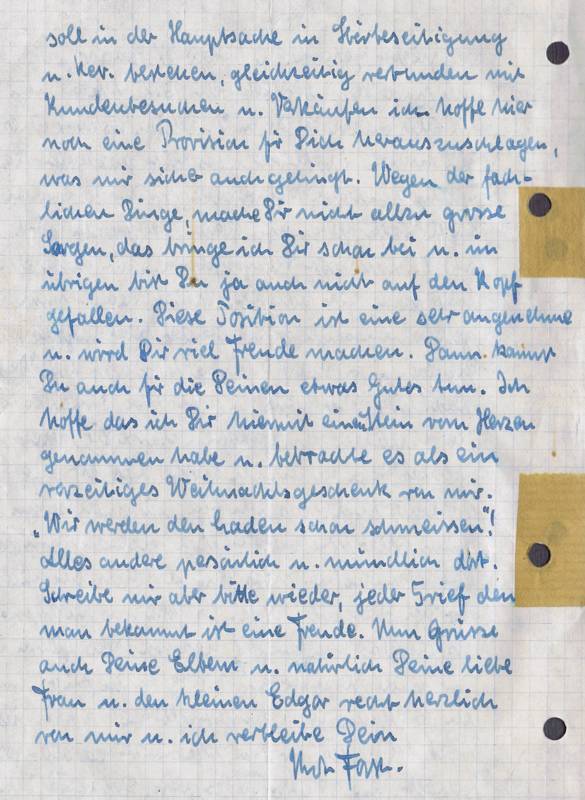 soll in der Hauptsache in Störbeseitigung
u. Rev. bestehen, gleichzeitig verbunden mit
Kundenbesuchen u. Verkäufen ich hoffe hier
noch eine Provision für Dich herauszuschlagen,
was mir sicher auch gelingt. Wegen der fach-
lichen Dinge, mache Dir nicht allzu grosse
Sorgen, das bringe ich Dir schon bei u. im
übrigen bist Du ja auch nicht auf den Kopf
gefallen. Diese Position ist eine sehr angenehme
u. wird Dir viel Freude machen. Dann kannst
Du auch für die Deinen etwas Gutes tun. Ich
hoffe das ich Dir hiermit einen Stein vom Herzen
genommen habe u. betrachte es als ein
vorzeitiges Weihnachtsgeschenk von mir.
„Wir werden den Laden schon schmeissen"!
Alles andere persönlich u. mündlich dort.
Schreibe mir aber bitte wieder, jeder Brief den
man bekommt ist eine Freude. Nun Grüsse
auch Deine Eltern u. natürlich Deine liebe
Frau u. den kleinen Edgar recht herzlich
von mir u. ich verbleibe Dein